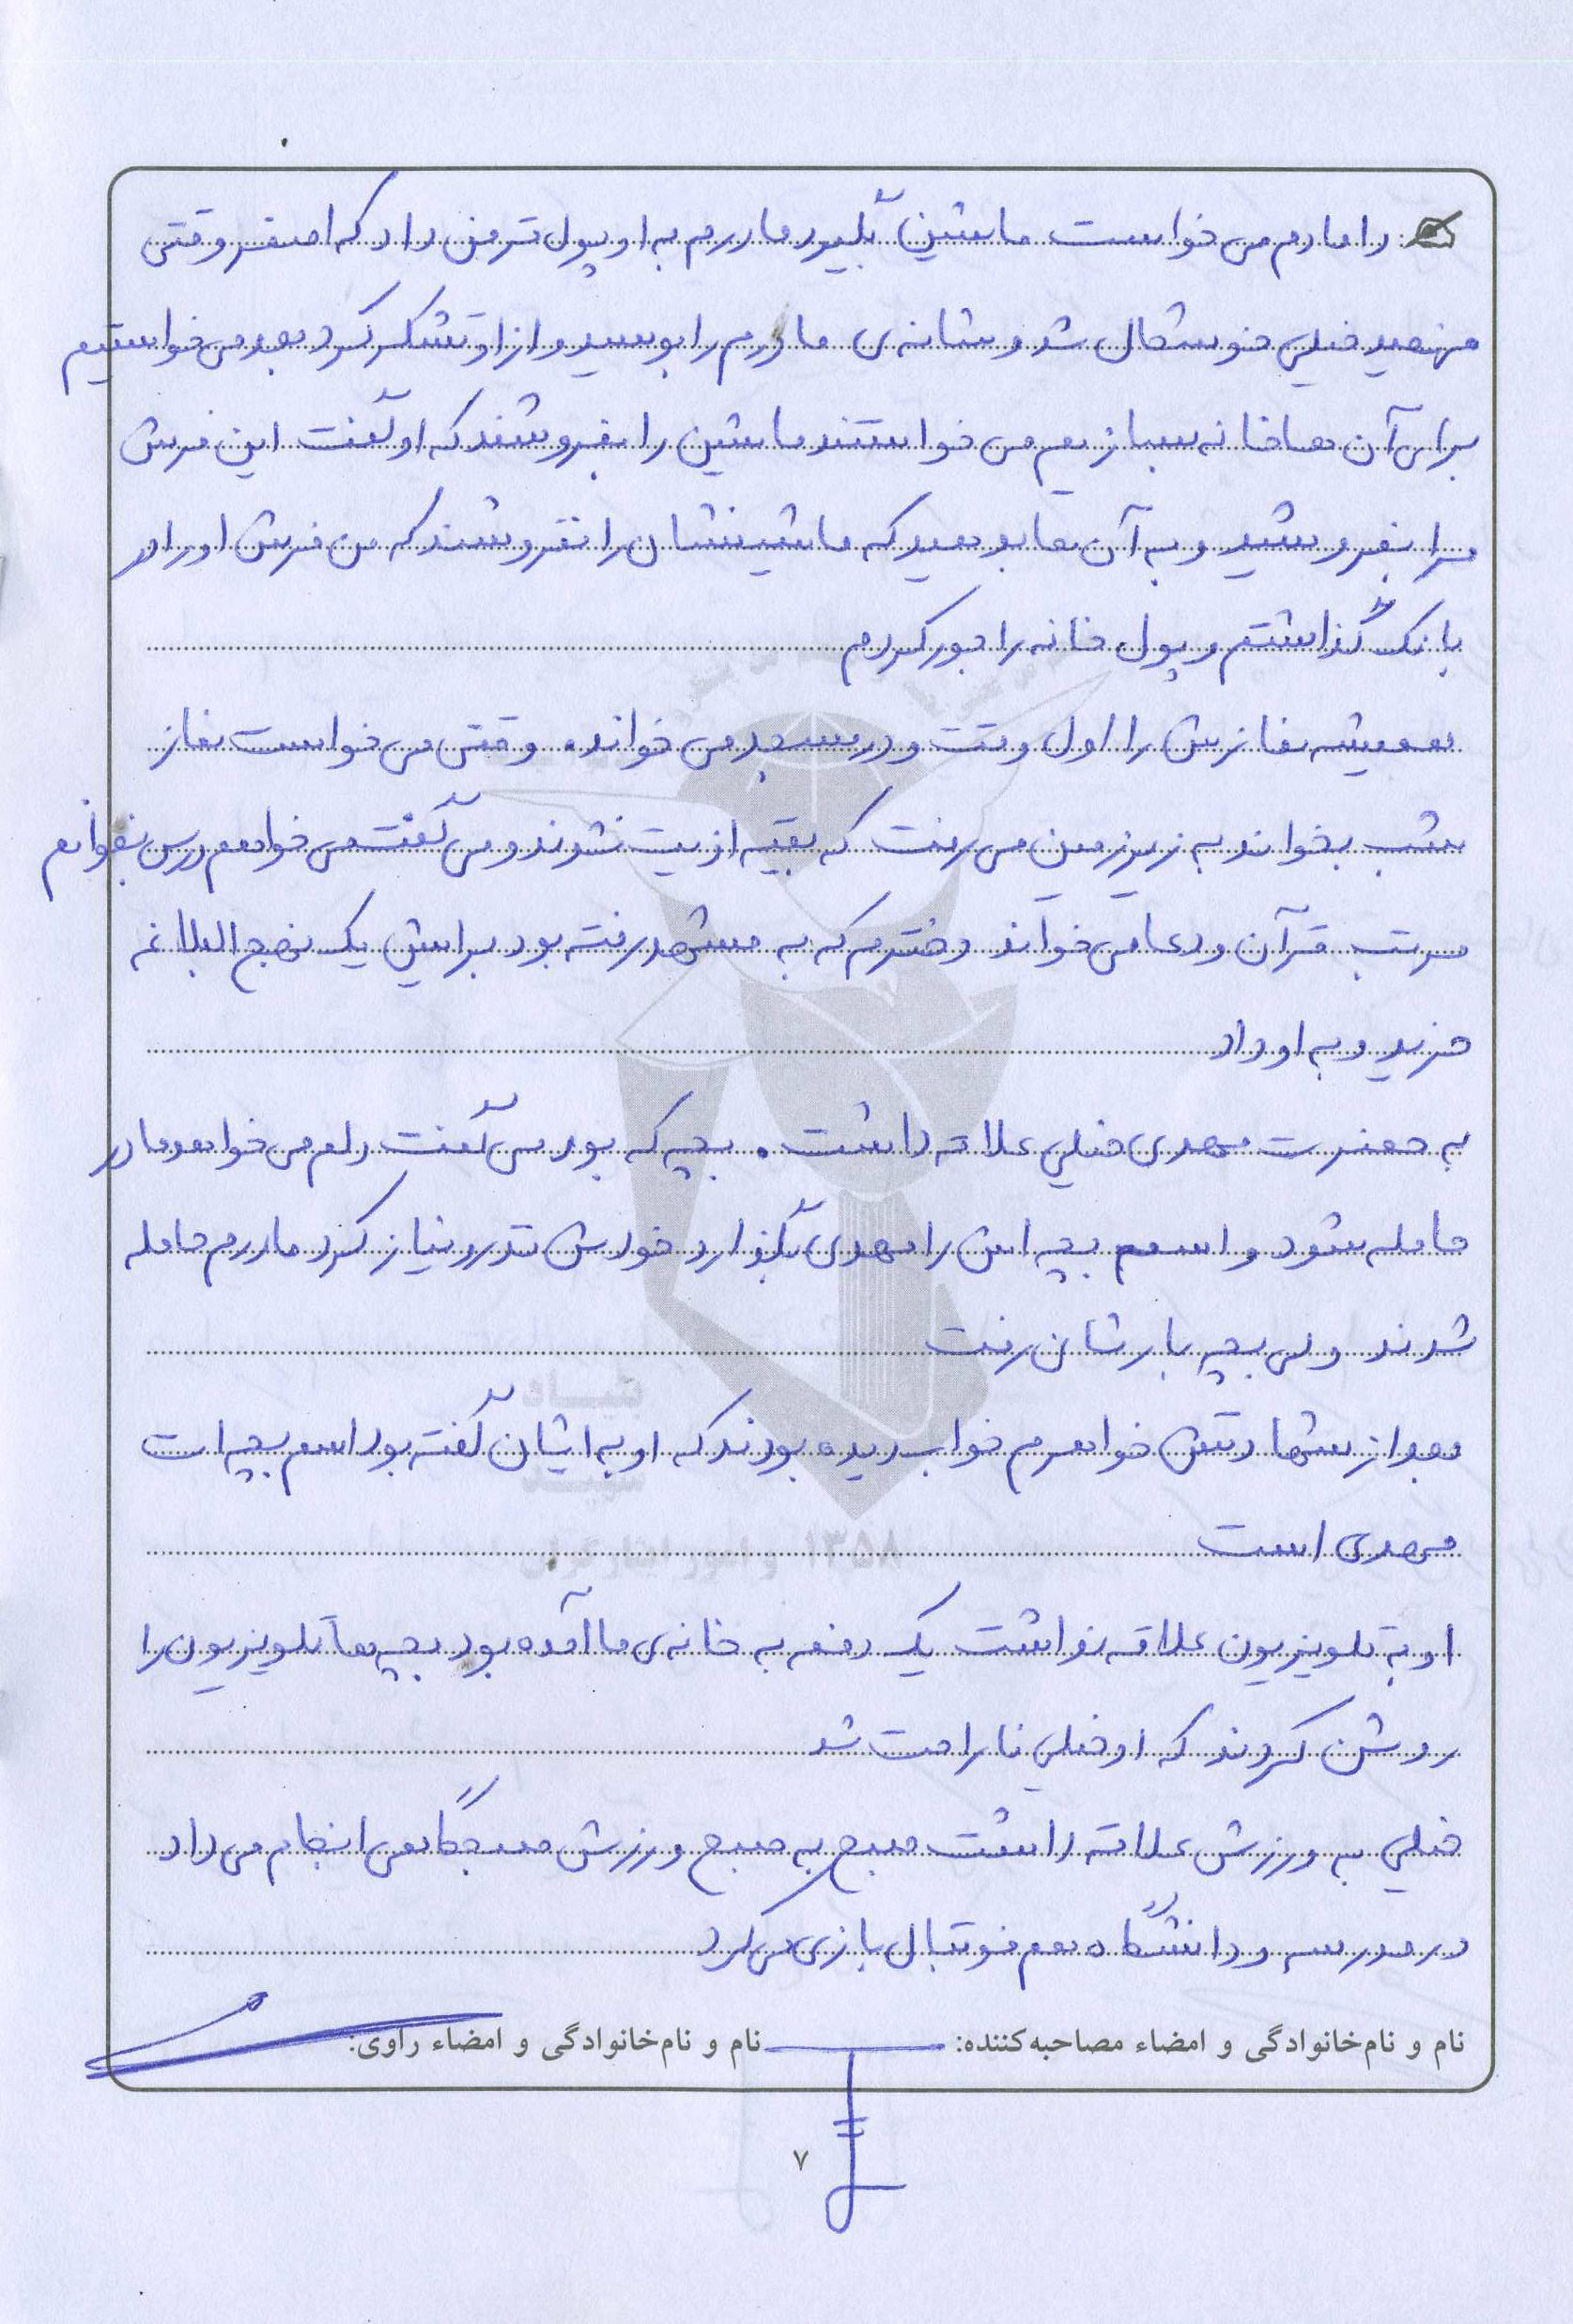 دامادم می خواست ماشین بگیرد مادرم به او پول قرض داد که اصغر وقتی
فهمید خیلی خوشحال شد و شانه ی مادرم را بوسید و از او تشکر کرد بعد می خواستیم
برای آن ها خانه بسازیم می خواستند ماشین را بفروشند که او گفت این فرش
مرا بفروشید و به آن ها بدهید که ماشینشان را نفروشند که من فرش او را در
بانک گذاشتم و پول خانه را جور کردم
همیشه نمازش را اول وقت و در مسجد می خواند. وقتی می خواست نماز
شب بخواند به زیرزمین می رفت که بقیه اذیت نشوند و می گفت می خواهم درس بخوانم
مرتب قرآن و دعا می خواند دخترم که به مشهد رفته بود برایش یک نهج البلاغه
خرید و به او داد
به حضرت مهدی خیلی علاقه داشت. بچه که بود می گفت دلم می خواهد مادر
حامله شود و اسم بچه اش را مهدی بگذارد خودش نذر و نیاز کرد مادرم حامله
شدند ولی بچه یادشان رفت
بعد از شهادتش خواهرم خواب دیده بودند که او به ایشان گفته بود اسم بچه ات
مهدی است
او به تلویزیون علاقه نداشت یک دفعه به خانه ی ما آمده بود بچه ها تلویزیون را
روشن کردند که او خیلی ناراحت شد
خیلی به ورزش علاقه داشت صبح به صبح ورزش صبحگاهی انجام می داد
در مدرسه و دانشگاه هم فوتبال بازی می کرد
نام و نام‌خانوادگی و امضاء مصاحبه‌کننده: نام و نام‌خانوادگی و امضاء راوی:
۷